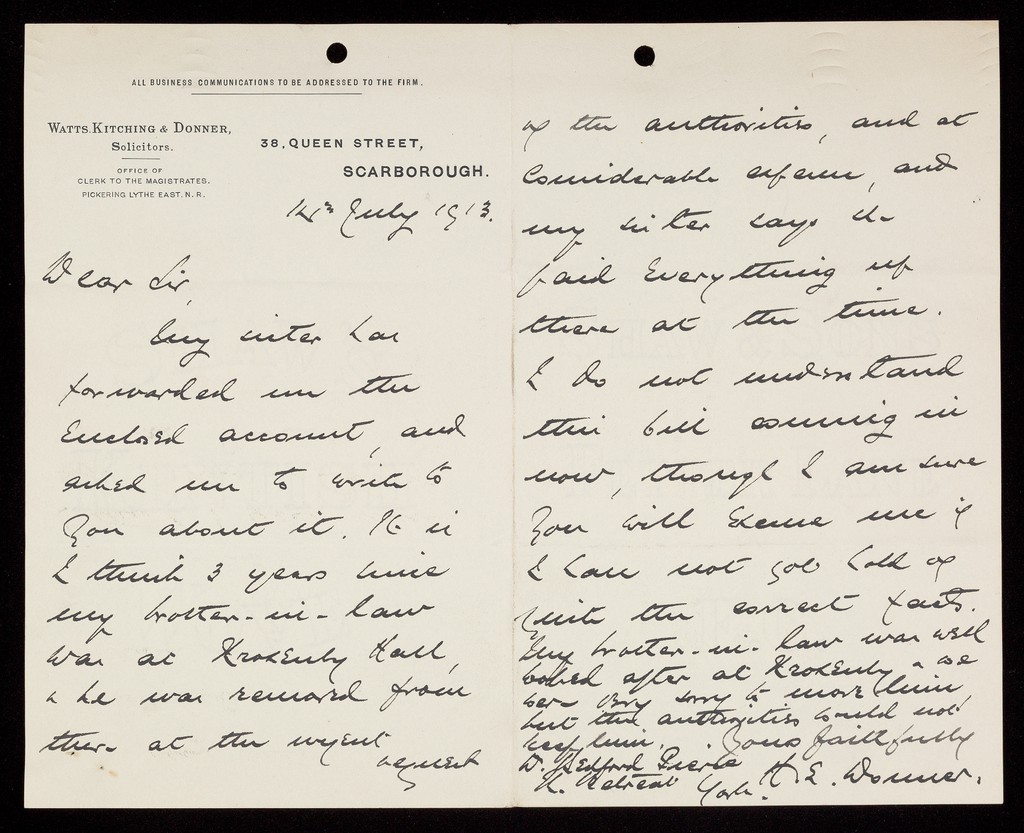 ALL BUSINESS COMMUNICATIONS TO BE ADDRESSED TO THE FIRM.
WATTS. KITCHING & DONNER,
Solicitors.
OFFICE OF
CLERK TO THE MAGISTRATES.
PICKERING LYTHE EAST. N. R.
38, QUEEN STREET,
SCARBOROUGH.
July 1913.
Dear Sir,
My sister has
forwarded me the
enclosed account, and
asked me to write to
you about it. It is
I think 3 years since
my brother-in-law
was at Kroxenby Hall,
& he was removed from
there at the urgent
request
of the authorities, and at
considerable expense, and
my sister says she
paid everything up
there at the time.
I do not understand
this bill coming in
now, though I am sure
you will excuse me if
I have not got hold of
quite the correct facts.
My brother-in-law was well
looked after at Kroxenby & we
were very sorry to move him,
but the authorities would not
keep him. Yours faithfully
H. E. Donner.
W. Bedford Pierce
Retreat York.